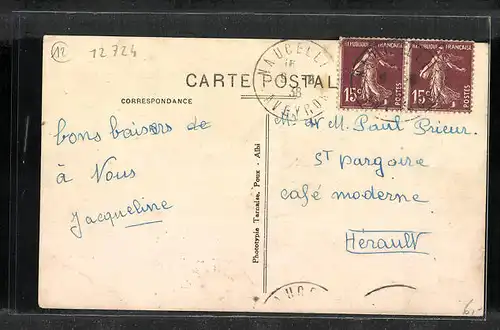 12
12 724
NAUCELLE
18
9 - 8
36
AVEYRON
RÉPUBLIQUE FRANÇAISE
15c
POSTES
RÉPUBLIQUE FRANÇAISE
15c
POSTES
CARTE POSTAL
CORRESPONDANCE
bons baisers de
à Vous
Jacqueline
Phototypie Tarnaise, Poux - Albi
M. et M. Paul Prieur.
St Pargoire
café moderne
Hérault
AUCE
6,-